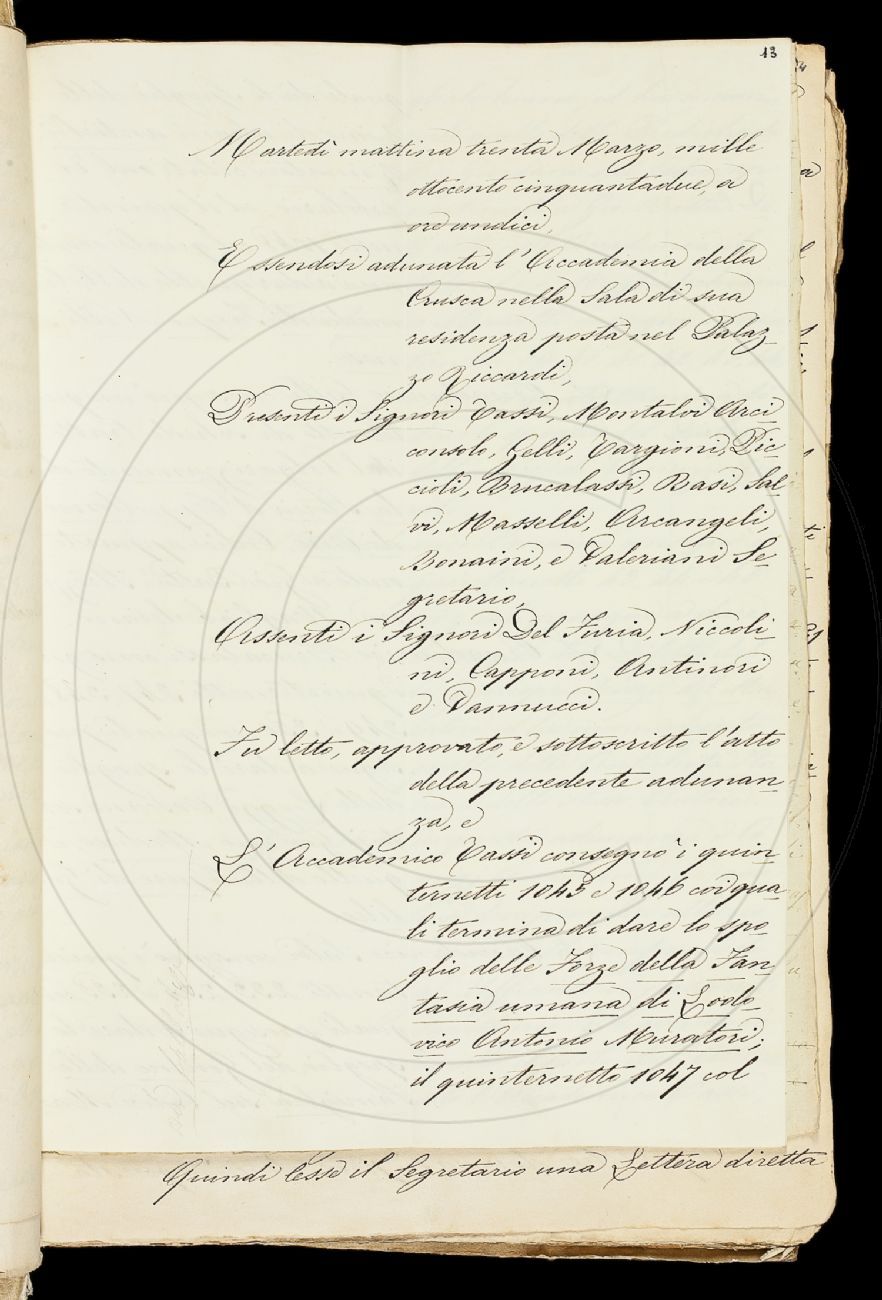 13
Martedì mattina trenta Marzo, mille
ottocento cinquantadue, a
ore undici,
Essendosi adunata l'Accademia della
Crusca nella Sala di sua
residenza posta nel Palaz-
zo Riccardi,
Presenti i Signori Tassi, Montalvi Arci-
consolo, Gelli, Targioni, Pic-
cioli, Brucalassi, Basi, Sal-
vi, Masselli, Arcangeli,
Bonaini, e Valeriani Se-
gretario,
Assenti i Signori Del Furia, Niccoli-
ni, Capponi, Antinori
e Vannucci.
Fu letto, approvato, e sottoscritto l'atto
della precedente adunan-
za, e
L'Accademico Tassi consegnò i quin-
ternetti 1045 e 1046 coi qua-
li termina di dare lo spo-
glio delle Forze della Fan-
tasia umana di Lodo-
vico Antonio Muratori;
il quinternetto 1047 col
Quindi lesse il Segretario una Lettera diretta